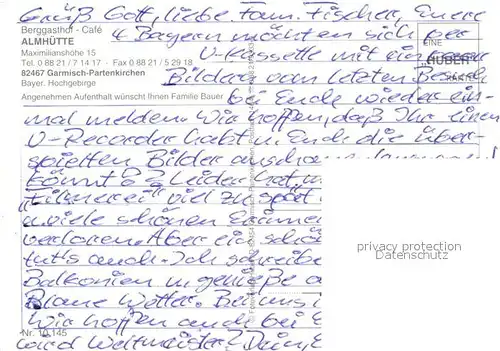 Grüß Gott, liebe Fam. Fischer, Euere
Berggasthof - Café
ALMHÜTTE
Maximilianshöhe 15
Tel. 0 88 21 / 7 14 17 - Fax 0 88 21 / 5 29 18
82467 Garmisch-Partenkirchen
Bayer. Hochgebirge
Angenehmen Aufenthalt wünscht Ihnen Familie Bauer
EINE
HUBER
KARTE
4 Bayern möchten sich per
V-Kassette mit ein paar
Bildern vom letzten Besuch
bei Euch wieder ein-
mal melden. Wir hoffen, daß Ihr einen
V-Recorder habt u. Euch die über-
spielten Bilder anschauen
könnt?? Leider hat
"Filmerei" viel zu spät
u. viele schönen Erinner
verloren. Aber ein schö
tut's auch. Ich schreibe
Balkonien u. genieße
Blaue Wetter. Bei uns
Wir hoffen auch bei E
wird Weltmeister? Dein
Nr. 10 145
privacy protection
Datenschutz